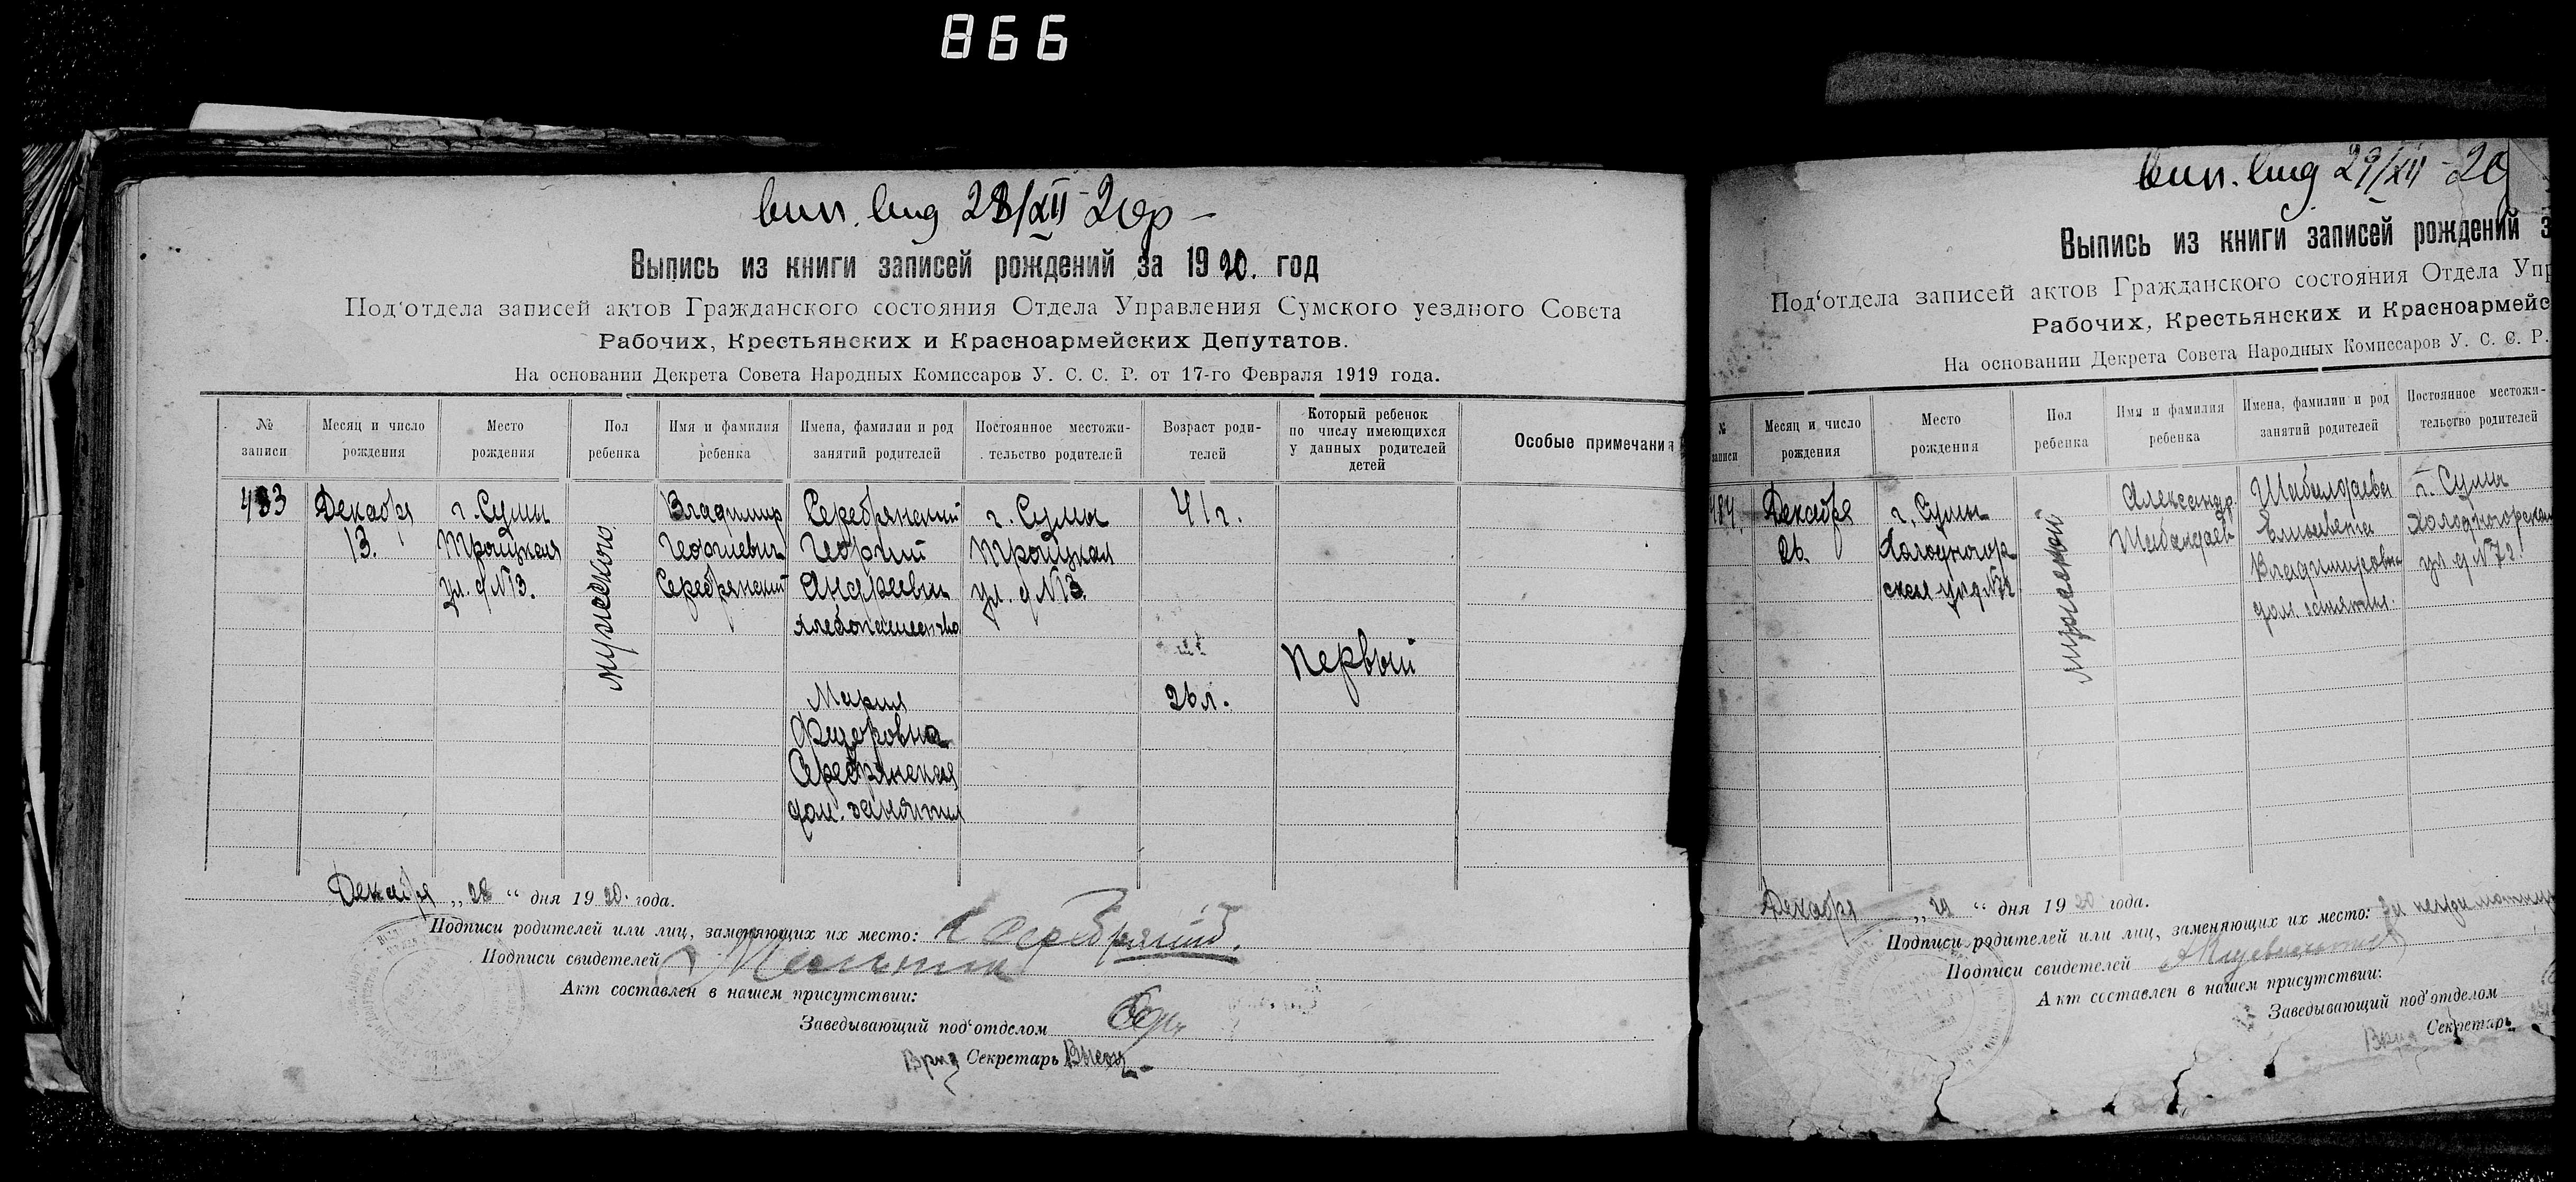 866
вып. выд 28/XII-20р-
Выпись из книги записей рождений за 1920. год
Под'отдела записей актов Гражданского состояния Отдела Управления Сумского уездного Совета
Рабочих, Крестьянских и Красноармейских Депутатов.
На основании Декрета Совета Народных Комиссаров У. С. С. Р. от 17-го Февраля 1919 года.
№ записи
Месяц и число рождения
Место рождения
Пол ребенка
Имя и фамилия ребенка
Имена, фамилии и род занятий родителей
Постоянное местожительство родителей
Возраст родителей
Который ребенок по числу имеющихся у данных родителей детей
Особые примечания
483
Декабря
13.
г. Сумы
Троицкая
ул. д №13.
мужеского
Владимир
Георгиевич
Серебрянский
Серебрянский
Георгий
Андреевич
хлебопашество
Мария
Федоровна
Серебрянская
дом. занятия
г. Сумы
Троицкая
ул. д №13.
41 г.
26 л.
Первый
Декабря „28“ дня 1920. года.
Подписи родителей или лиц, заменяющих их место: Серебряний.
Подписи свидетелей
Акт составлен в нашем присутствии:
Заведывающий под'отделом
Врид Секретарь
вып. выд 29/XII-20
Выпись из книги записей рождений з
Под'отдела записей актов Гражданского состояния Отдела Упр
Рабочих, Крестьянских и Красноармейс
На основании Декрета Совета Народных Комиссаров У. С. С. Р.
№ записи
Месяц и число рождения
Место рождения
Пол ребенка
Имя и фамилия ребенка
Имена, фамилии и род занятий родителей
Постоянное местожительство родителей
484.
Декабря
26.
г. Сумы
Холодногор
ская ул д №72
мужеский
Александр
Шабалдаев
Шабалдаева
Елисавета
Владимировна
дом. занятия.
г. Сумы
Холодногорская
ул. д №72.
Декабря „29“ дня 1920 года.
Подписи родителей или лиц, заменяющих их место: За неграмотную
Подписи свидетелей
Акт составлен в нашем присутствии:
Заведывающий под'отделом
Врид Секретарь